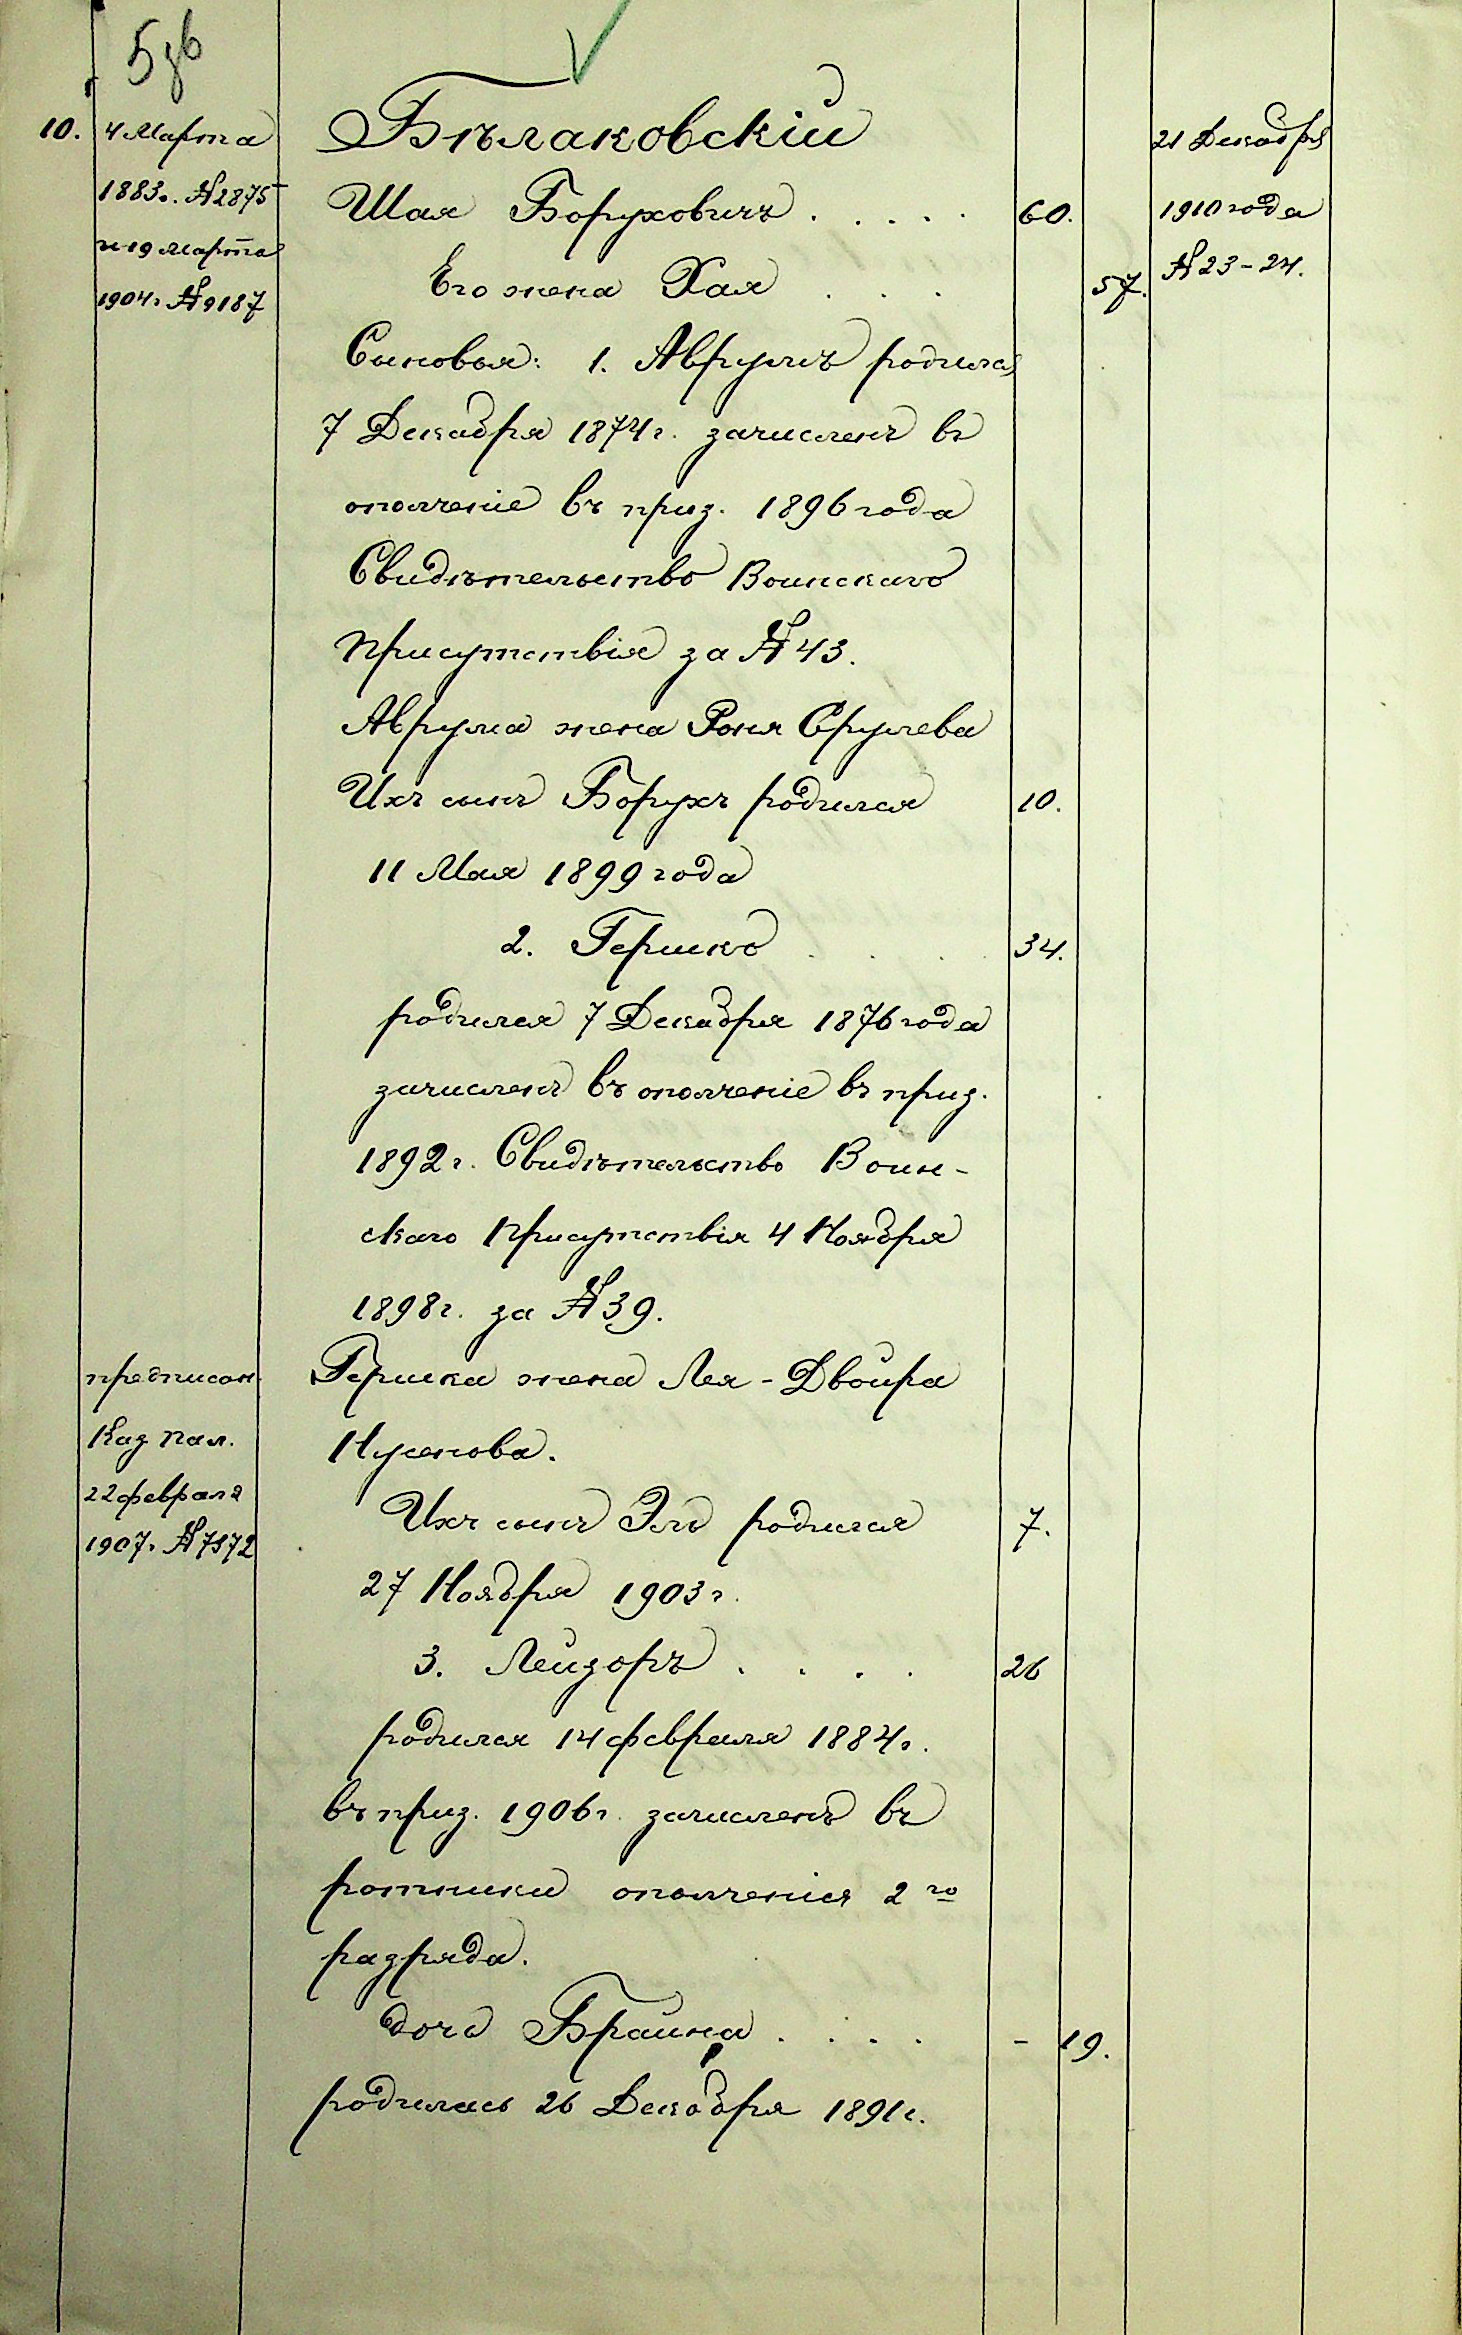 10.
4 Марта
1883г. № 2875
и 19 Марта
1904г. № 9187
Бѣлаковскій
Шая Боруховичъ . . . . . 60.
Его жена Хая . . . 57.
21 Декабря
1910 года
№ 23-24.
Сыновья: 1. Аврумъ родился
7 Декабря 1874 г. зачисленъ въ
ополченіе въ приз. 1896 года
Свидѣтельство Воинскаго
Присутствія за № 43.
Аврума жена Роня Срулева
Ихъ сынъ Борухъ родился 10.
11 Мая 1899 года
2. Гершко . . . . 34.
родился 7 Декабря 1876 года
зачисленъ въ ополченіе въ приз.
1892 г. Свидѣтельство Воин-
скаго Присутствія 4 Ноября
1898 г. за № 39.
предписан.
Каз. Пал.
22 февраля
1907г. № 7872
Гершка жена Лея-Двойра
Нусенова.
Ихъ сынъ Эль родился 7.
27 Ноября 1903 г.
3. Лейзоръ . . . . 26
родился 14 февраля 1884 г.
въ приз. 1906 г. зачисленъ въ
ратники ополченія 2го
разряда.
дочь Брайна . . . . - 19.
родилась 26 Декабря 1891 г.